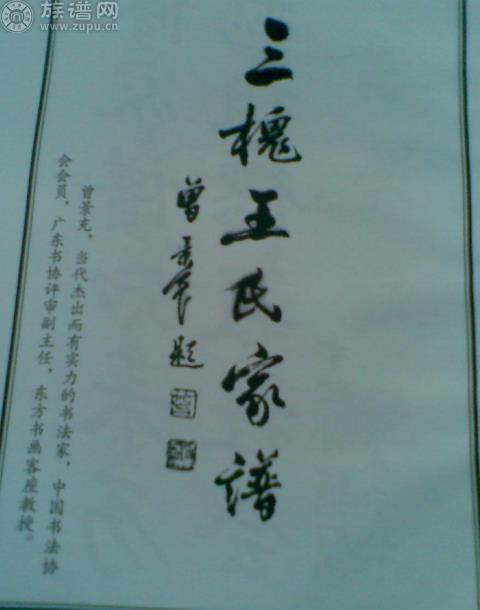 族谱网
www.zupu.cn
三槐王氏家谱
曾景充题
曾景充，当代杰出而有实力的书法家，中国书法协
会会员，广东书协评审副主任，东方书画客座教授。